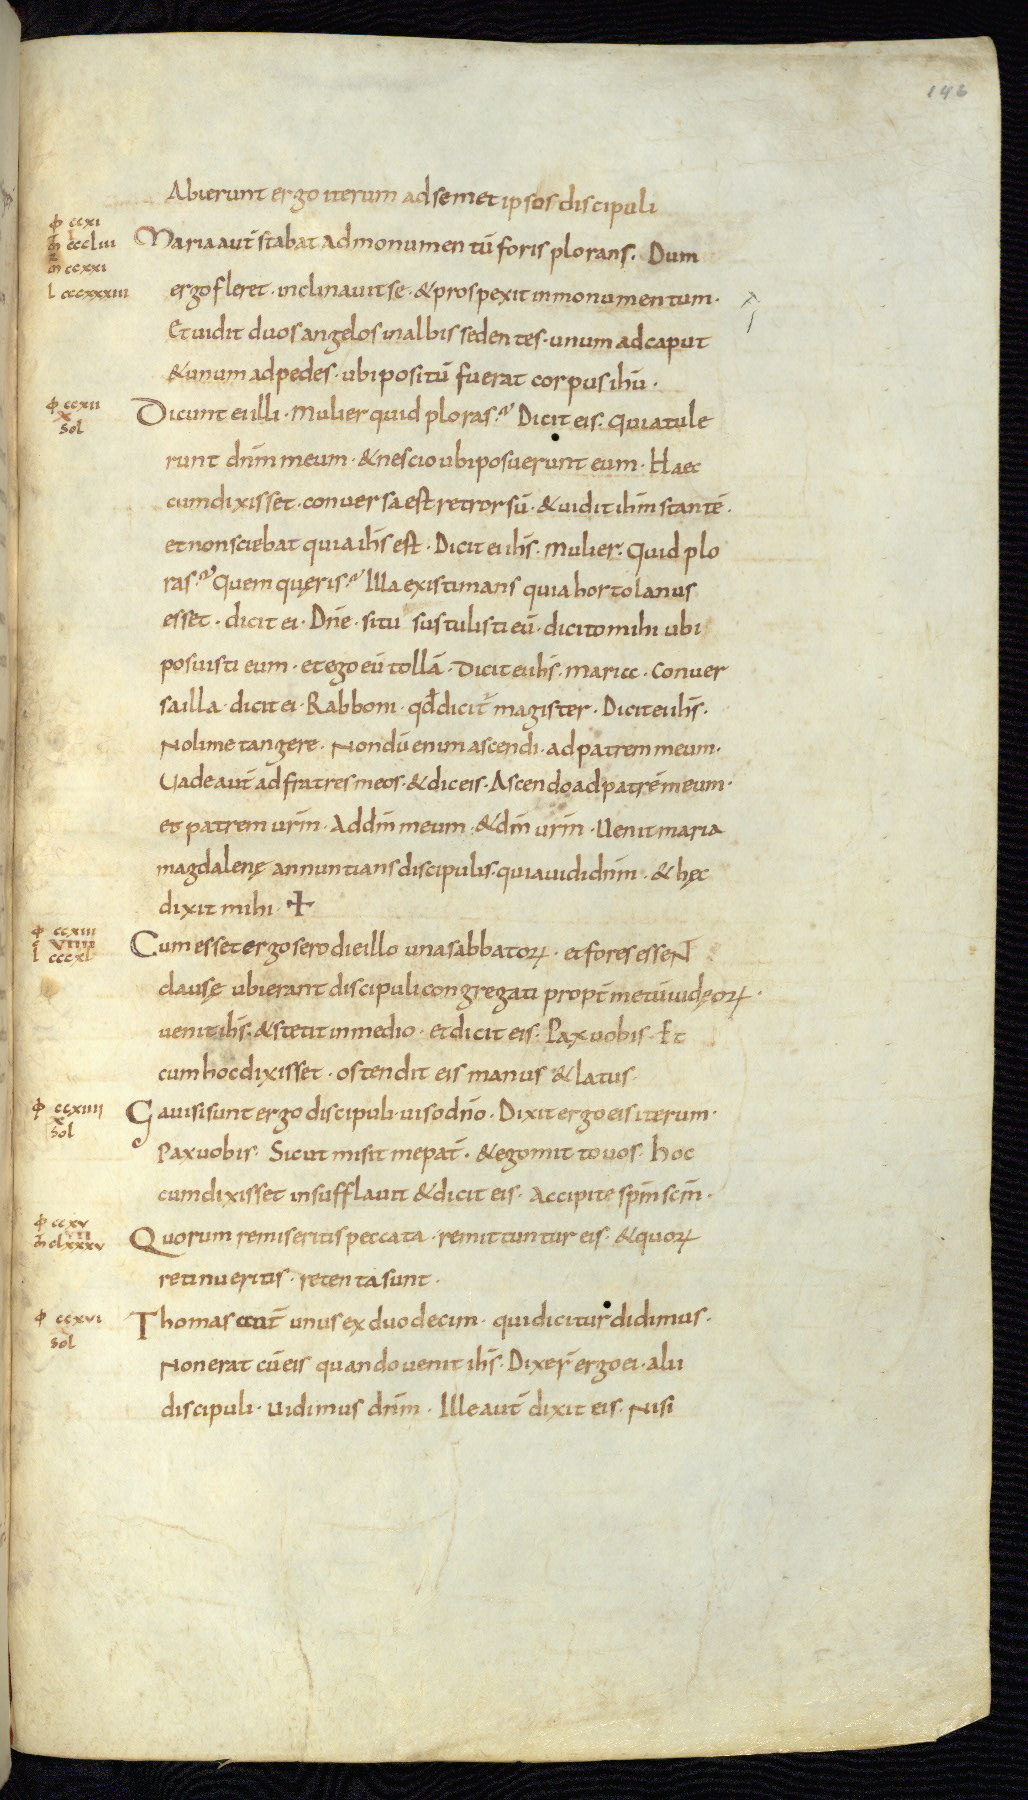 146
Abierunt ergo iterum ad semet ipsos discipuli
ϕ ccxi
m̄ ccclııı
Maria aut̄ stabat ad monumentū foris plorans. Dum
m̄ ccxxı
l cccxxxııı
ergo fleret · inclinauit se · & prospexit in monumentum ·
Et uidit duos angelos in albis sedentes · unum ad caput
& unum ad pedes · ubi positū fuerat corpus ihū ·
ϕ ccxıı
x
Sol
Dicunt ei illi · Mulier quid ploras? Dicit eis. Quia tule
runt dn̄m meum · & nescio ubi posuerunt eum · Haec
cum dixisset · conuersa est retrorsū · & uidit ihm̄ stantē ·
et non sciebat quia ihs̄ est · Dicit ei ihs̄. Mulier. Quid plo
ras? Quem quęris? Illa existimans quia hortolanus
esset · dicit ei · Dn̄e · si tu sustulisti eū · dicito mihi ubi
posuisti eum · et ego eū tollā · Dicit ei ihs̄. maria · Conuer
sa illa · dicit ei · Rabboni · qđ dicit̄ magister · Dicit ei ihs̄.
Noli me tangere · Nondū enim ascendi · ad patrem meum ·
Uade aut̄ ad fratres meos · & dic eis · Ascendo ad patrē meum ·
et patrem urm̄ · Ad dm̄ meum · & dm̄ urm̄ · Uenit maria
magdalenę annuntians discipulis · quia uidi dn̄m · & hęc
dixit mihi · ✝
ϕ ccxııı
c̄ vıııı
l cccxl
Cum esset ergo sero die illo una sabbatoꝝ · et fores essent
clausę ubi erant discipuli congregati propt̄ metū iudęoꝝ ·
uenit ihs̄. & stetit in medio · et dicit eis · Pax uobis · Et
cum hoc dixisset · ostendit eis manus & latus ·
ϕ ccxıııı
x
Sol
Gauisi sunt ergo discipuli · uiso dn̄o · Dixit ergo eis iterum ·
Pax uobis · Sicut misit me pat̄ · & ego mitto uos · hoc
cum dixisset insufflauit & dicit eis · Accipite spm̄ scm̄ ·
ϕ ccxv
vıı
m̄ clxxxv
Quorum remiseritis peccata · remittuntur eis · & quoꝝ
retinueritis · retenta sunt ·
ϕ ccxvı
Sol
Thomas aut̄ unus ex duodecim · qui dicitur didimus ·
Non erat cū eis quando uenit ihs̄ · Dixer̄ ergo ei · alii
discipuli · Uidimus dn̄m · Ille aut̄ dixit eis · Nisi